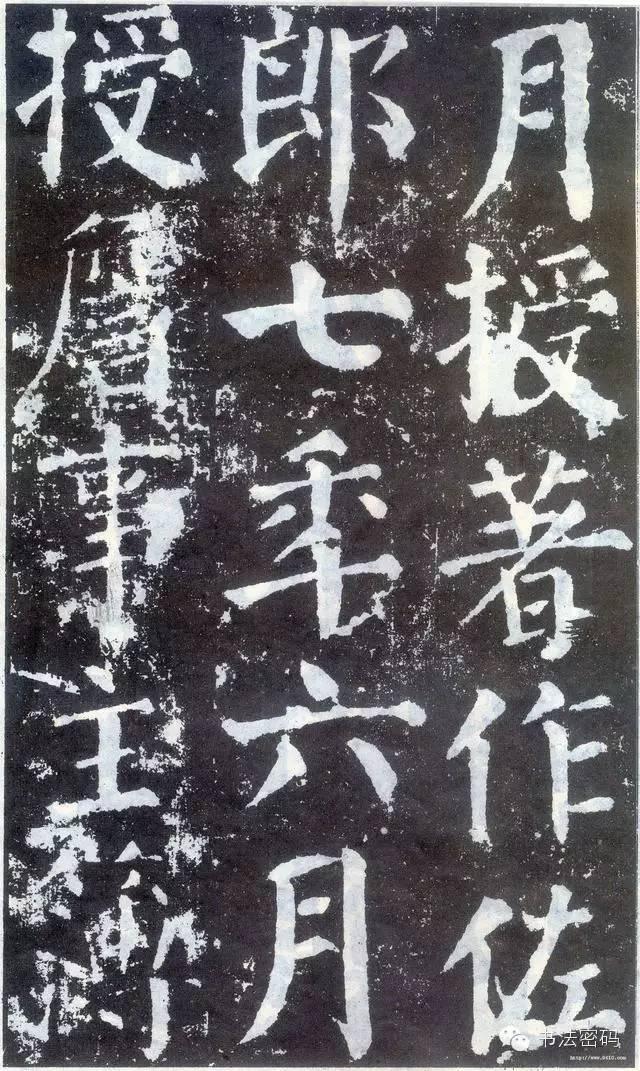 月授著作佐
郎七年六月
授詹事主簿
书法密码
http://www.9610.com